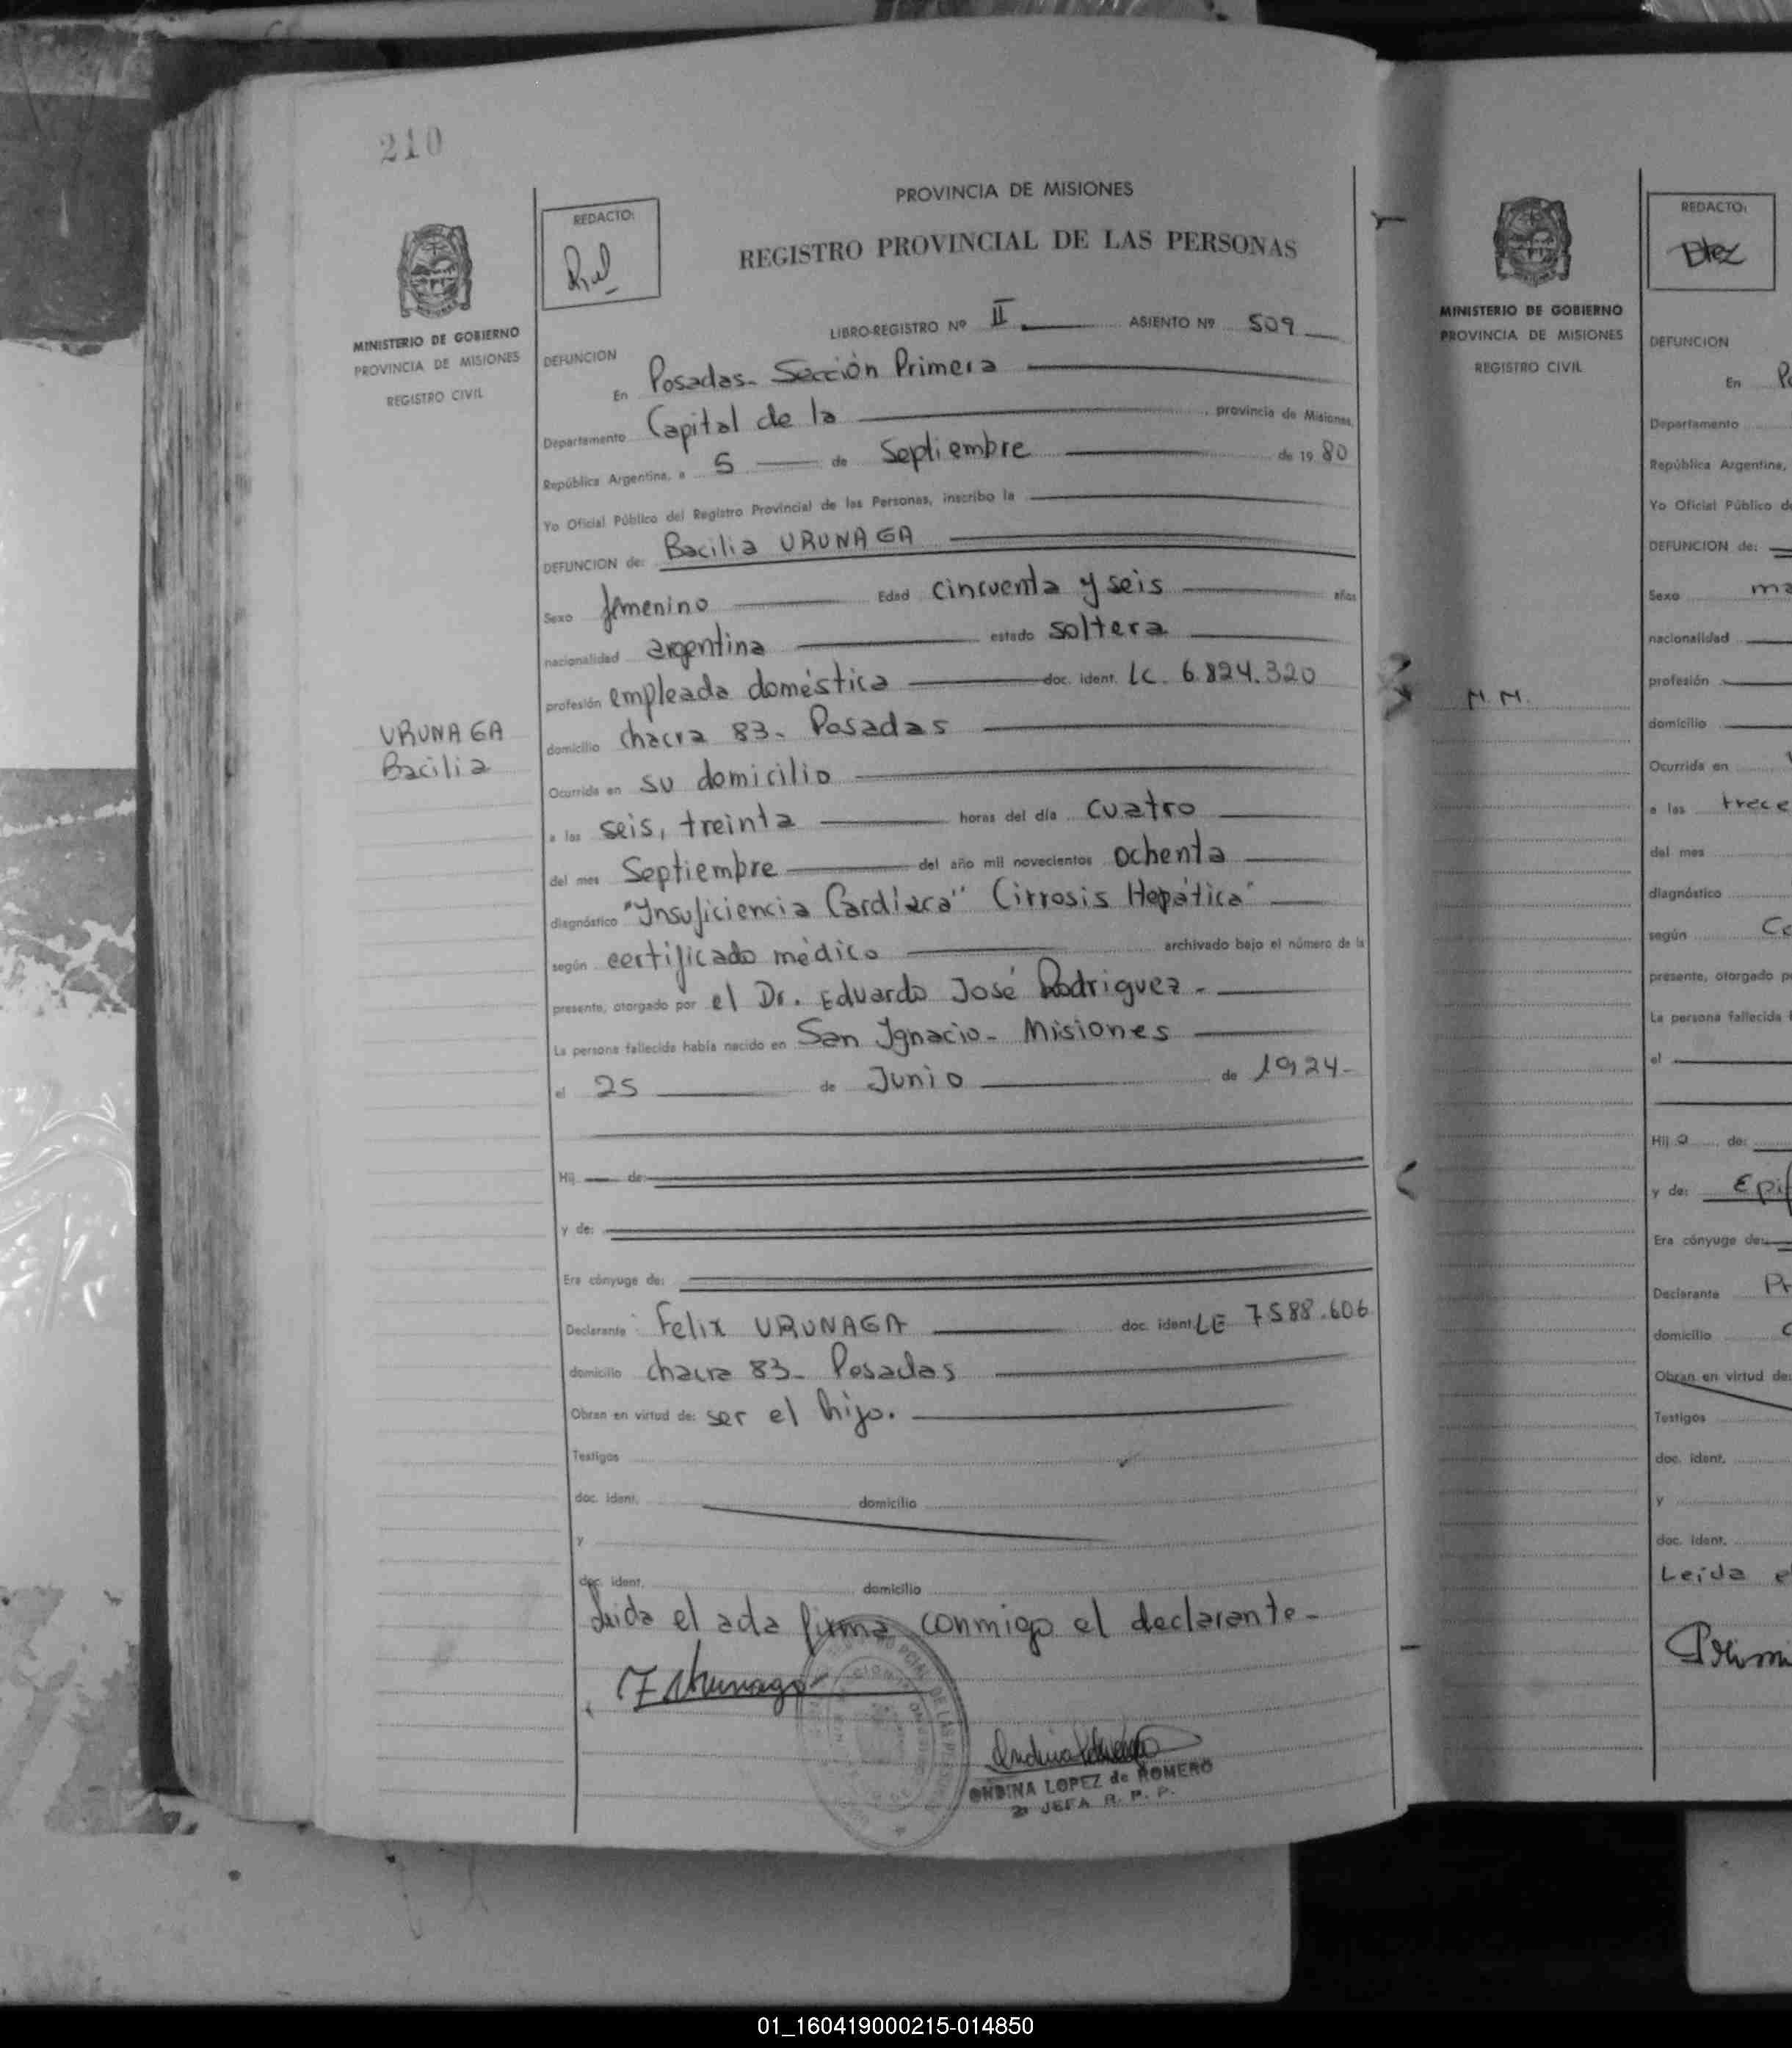 210
PROVINCIA DE MISIONES
REDACTO:
REGISTRO PROVINCIAL DE LAS PERSONAS
MINISTERIO DE GOBIERNO
PROVINCIA DE MISIONES
REGISTRO CIVIL
LIBRO-REGISTRO Nº II ASIENTO Nº 509
DEFUNCION
En Posadas- Sección Primera
Departamento Capital de la , provincia de Misiones,
República Argentina, a 5 de Septiembre de 19 80
Yo Oficial Público del Registro Provincial de las Personas, inscribo la
DEFUNCION de: Bacilia URUNAGA
Sexo femenino Edad cincuenta y seis años
nacionalidad argentina estado soltera
profesión empleada doméstica doc. ident. LC. 6.824.320
URUNAGA
Bacilia
domicilio chacra 83- Posadas
Ocurrida en su domicilio
a las seis, treinta horas del día cuatro
del mes Septiembre del año mil novecientos ochenta
diagnóstico "Insuficiencia Cardíaca" Cirrosis Hepática"
según certificado médico archivado bajo el número de la
presente, otorgado por el Dr. Eduardo José Rodriguez -
La persona fallecida había nacido en San Ignacio- Misiones
el 25 de Junio de 1924-
Hij de:
y de:
Era cónyuge de:
Declarante Felix URUNAGA doc. ident. LE 7588.606
domicilio chacra 83- Posadas
Obran en virtud de: ser el hijo.
Testigos
doc. ident. domicilio
y
doc. ident. domicilio
Leida el acta firma conmigo el declarante-
ONDINA LOPEZ de ROMERO
2º JEFA R. P. P.
MINISTERIO DE GOBIERNO
PROVINCIA DE MISIONES
REGISTRO CIVIL
N.N.
REDACTO:
Btez
DEFUNCION
En
Departamento
República Argentina,
Yo Oficial Público
DEFUNCION de:
Sexo
nacionalidad
profesión
domicilio
Ocurrida en
a las trece
del mes
diagnóstico
según
presente, otorgado
La persona fallecida
el
Hij o de:
y de:
Era cónyuge de:
Declarante
domicilio
Obran en virtud de:
Testigos
doc. ident.
y
doc. ident.
Leída
01_160419000215-014850